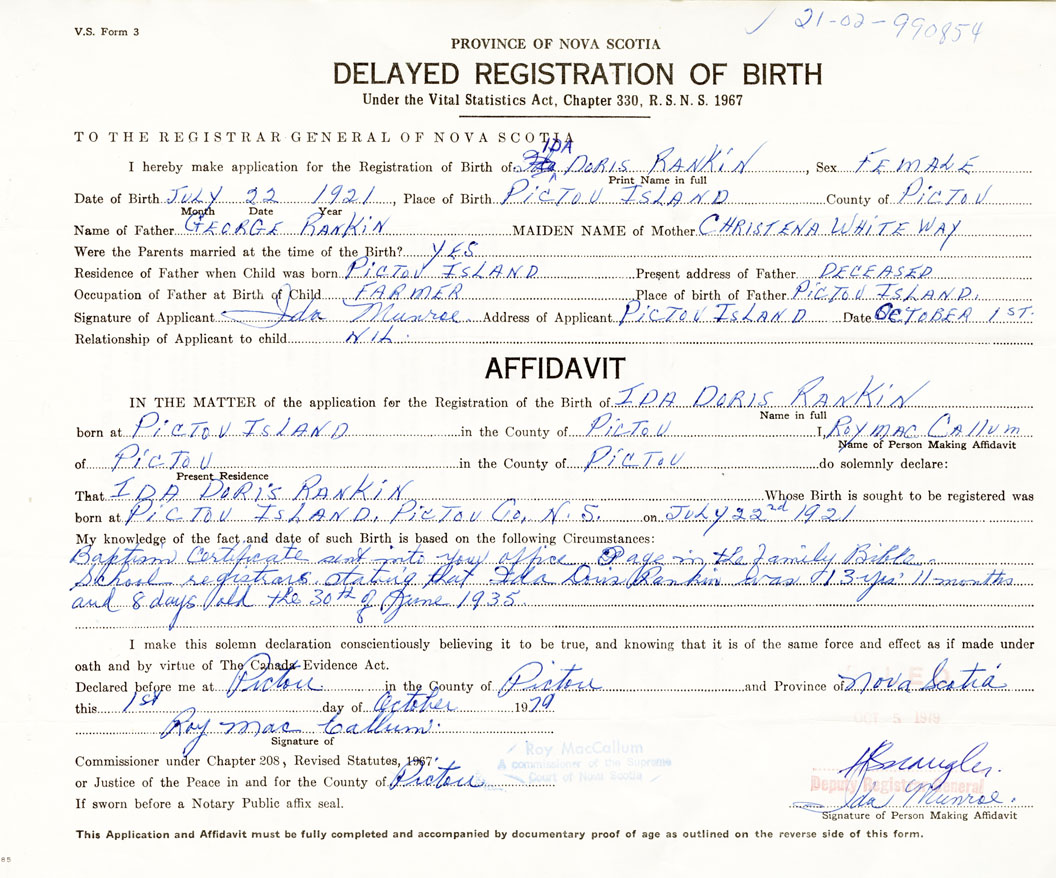 21-02-990854
V.S. Form 3
PROVINCE OF NOVA SCOTIA
DELAYED REGISTRATION OF BIRTH
Under the Vital Statistics Act, Chapter 330, R. S. N. S. 1967
TO THE REGISTRAR GENERAL OF NOVA SCOTIA
I hereby make application for the Registration of Birth of IDA DORIS RANKIN, Sex FEMALE
Print Name in full
Date of Birth JULY 22 1921, Place of Birth PICTOU ISLAND County of PICTOU
Month Date Year
Name of Father GEORGE RANKIN MAIDEN NAME of Mother CHRISTENA WHITE WAY
Were the Parents married at the time of the Birth? YES
Residence of Father when Child was born PICTOU ISLAND Present address of Father DECEASED
Occupation of Father at Birth of Child FARMER Place of birth of Father PICTOU ISLAND.
Signature of Applicant Ida Munroe Address of Applicant PICTOU ISLAND Date OCTOBER 1ST.
Relationship of Applicant to child NIL
AFFIDAVIT
IN THE MATTER of the application for the Registration of the Birth of IDA DORIS RANKIN
Name in full
born at PICTOU ISLAND in the County of PICTOU I, ROY MAC CALLUM
Name of Person Making Affidavit
of PICTOU in the County of PICTOU do solemnly declare:
Present Residence
That IDA DORIS RANKIN Whose Birth is sought to be registered was
born at PICTOU ISLAND, PICTOU Co, N. S. on JULY 22nd 1921
My knowledge of the fact and date of such Birth is based on the following Circumstances:
Baptism Certificate sent into your office. Page in the family Bible.
School registrars stating that Ida Doris Rankin was 13 yrs' 11 months
and 8 days old the 30th of June 1935.
I make this solemn declaration conscientiously believing it to be true, and knowing that it is of the same force and effect as if made under
oath and by virtue of The Canada Evidence Act.
Declared before me at Pictou in the County of Pictou and Province of Nova Scotia
this 1st day of October 1979
OCT 5 1979
Roy Mac Callum.
Signature of
Roy MacCallum
A commissioner of the Supreme
Court of Nova Scotia
Commissioner under Chapter 208, Revised Statutes, 1967
or Justice of the Peace in and for the County of Pictou
Deputy Registrar General
If sworn before a Notary Public affix seal.
Ida Munroe.
Signature of Person Making Affidavit
This Application and Affidavit must be fully completed and accompanied by documentary proof of age as outlined on the reverse side of this form.
85